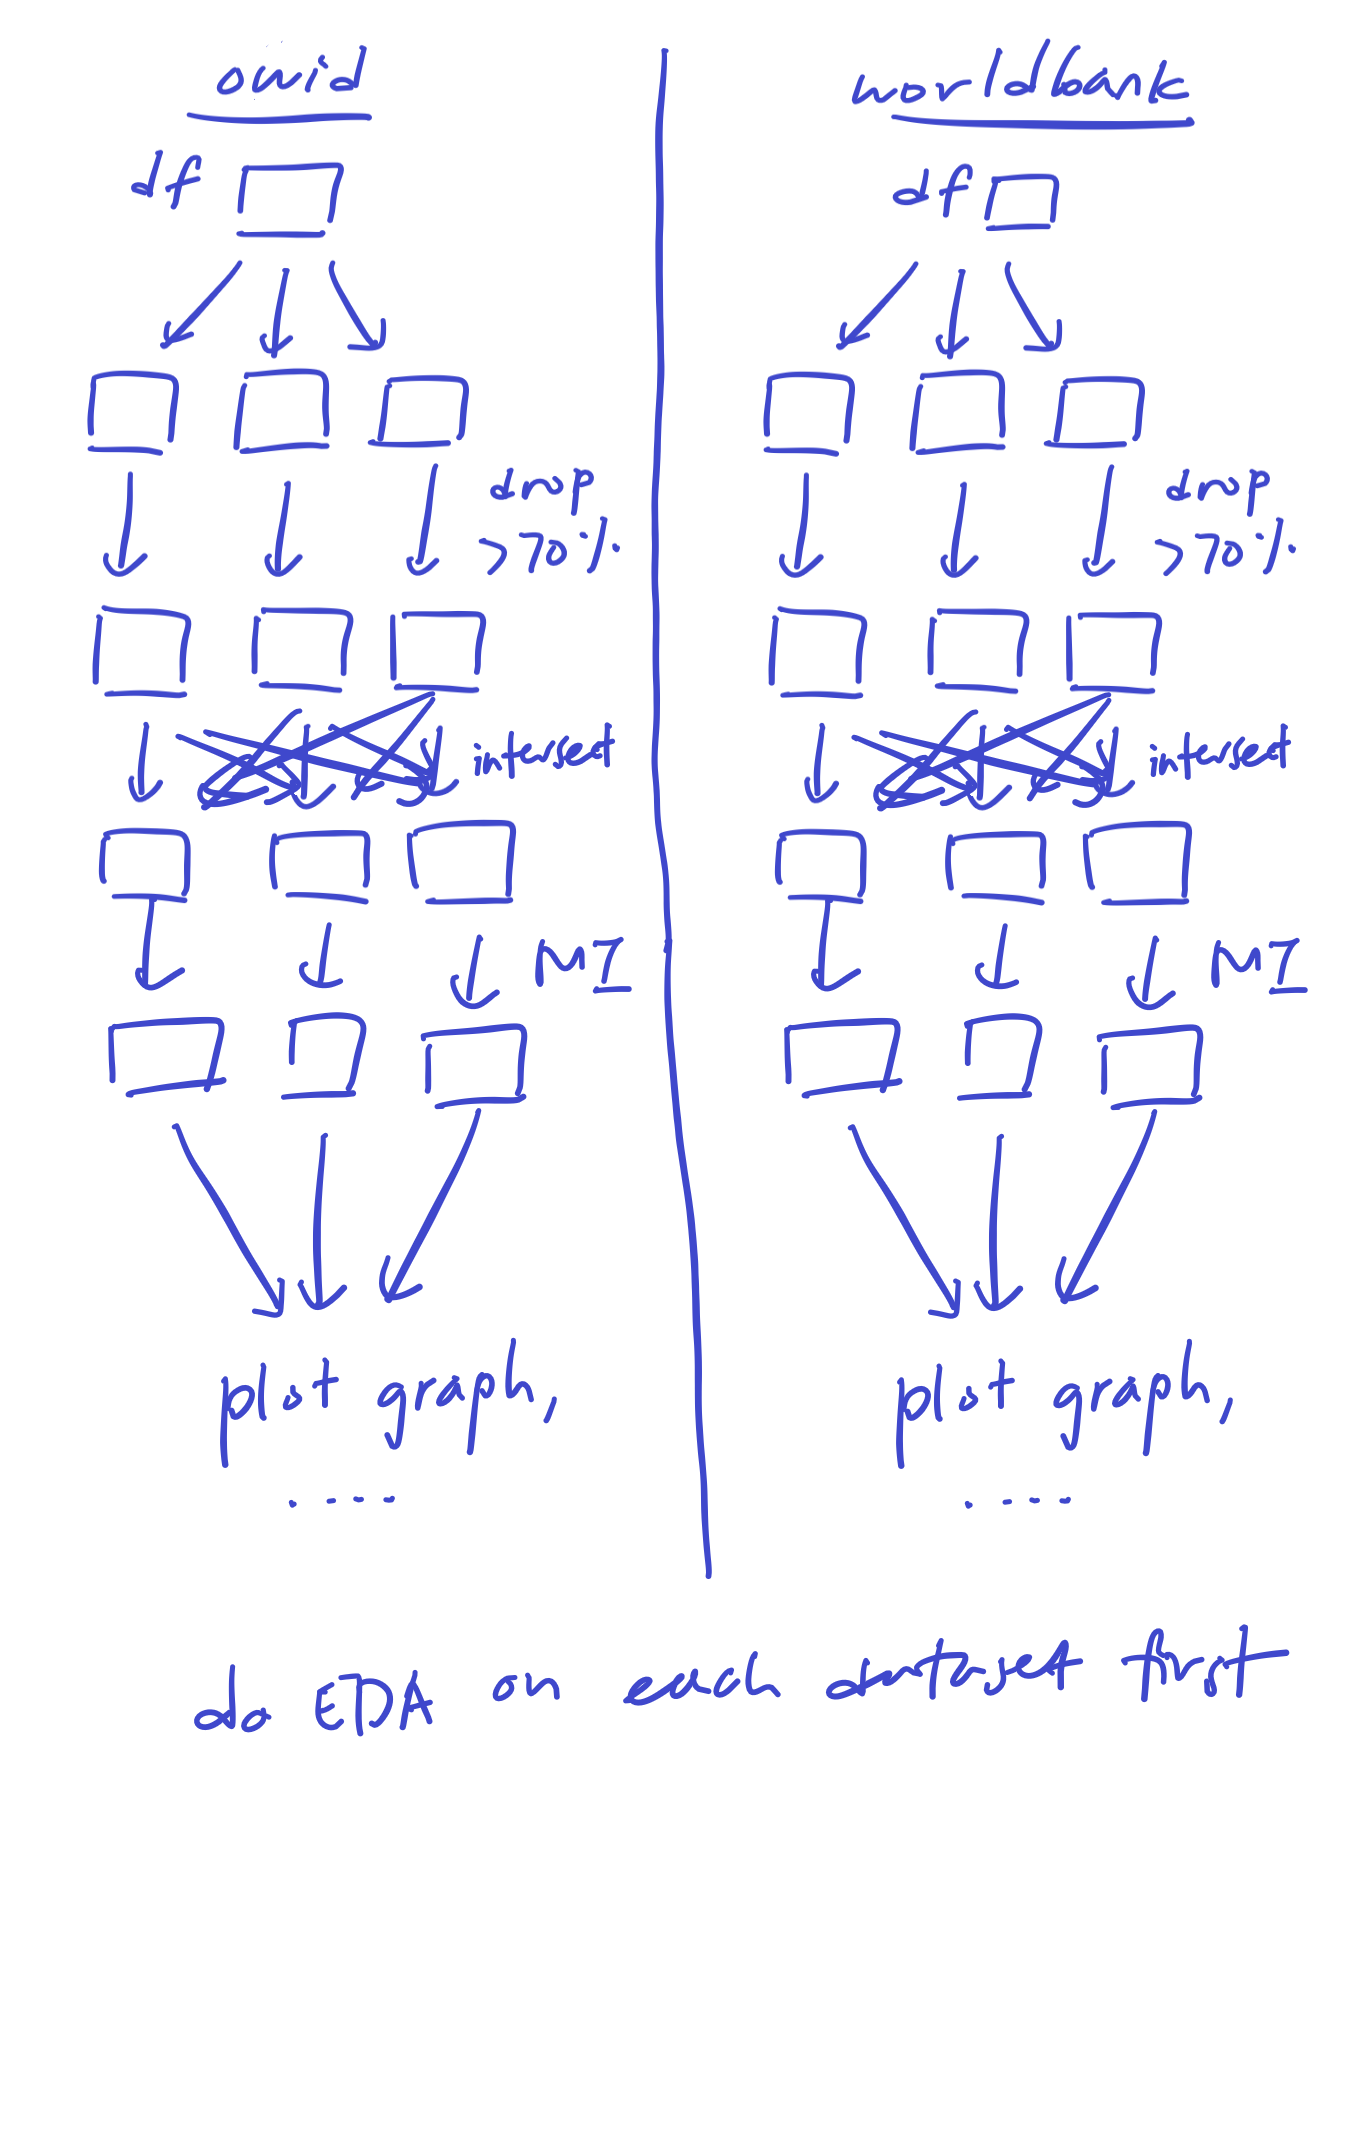 owid
df
drop
>70%
intersect
MI
plot graph,
....
worldbank
df
drop
>70%
intersect
MI
plot graph,
....
do EDA on each dataset first